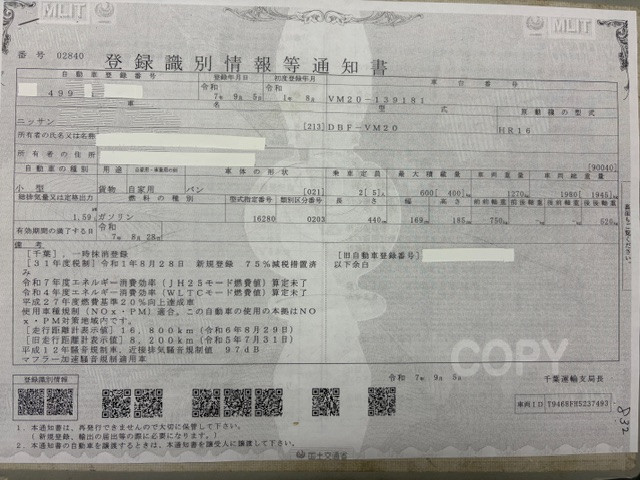 MLIT
MLIT
番号 02840
登録識別情報等通知書
自動車登録番号 登録年月日 初度登録年月 車台番号
499 令和 7年 9月 5日 令和 1年 8月 VM20-139181
車名 型式 原動機の型式
ニッサン [213] DBF-VM20 HR16
所有者の氏名又は名称
所有者の住所 [90040]
自動車の種別 用途 自家用・事業用の別 車体の形状 乗車定員 最大積載量 車両重量 車両総重量
小型 貨物 自家用 バン [021] 2[ 5]人 600[ 400]kg 1270kg 1980[ 1945]kg
総排気量又は定格出力 燃料の種類 型式指定番号 類別区分番号 長さ 幅 高さ 前前軸重 前後軸重 後前軸重 後後軸重
1.59 ガソリン 16280 0203 440cm 169cm 185cm 750kg -kg -kg 520kg
有効期間の満了する日 令和 7年 8月 28日
備考
[千葉],一時抹消登録 [旧自動車登録番号]
[31年度税制]令和1年8月28日 新規登録 75%減税措置済み 以下余白
令和7年度エネルギー消費効率(JH25モード燃費値)算定未了
令和4年度エネルギー消費効率(WLTCモード燃費値)算定未了
平成27年度燃費基準20%向上達成車
使用車種規制(NOx・PM)適合。この自動車の使用の本拠はNOx・PM対策地域内です。
[走行距離計表示値]16,800km(令和6年8月29日)
[旧走行距離計表示値]8,200km(令和5年7月31日)
平成12年騒音規制車、近接排気騒音規制値 97dB
マフラー加速騒音規制適用車
COPY
令和 7年 9月 5日 千葉運輸支局長
登録識別情報
車両ID T9468FH5237493
832
1.本通知書は、再発行できませんので大切に保管して下さい。
(新規登録、輸出の届出等の際に必要になります。)
2.本通知書の自動車を譲渡するときは、本通知書を譲受人に譲渡して下さい。
国土交通省
裏面もご覧ください。